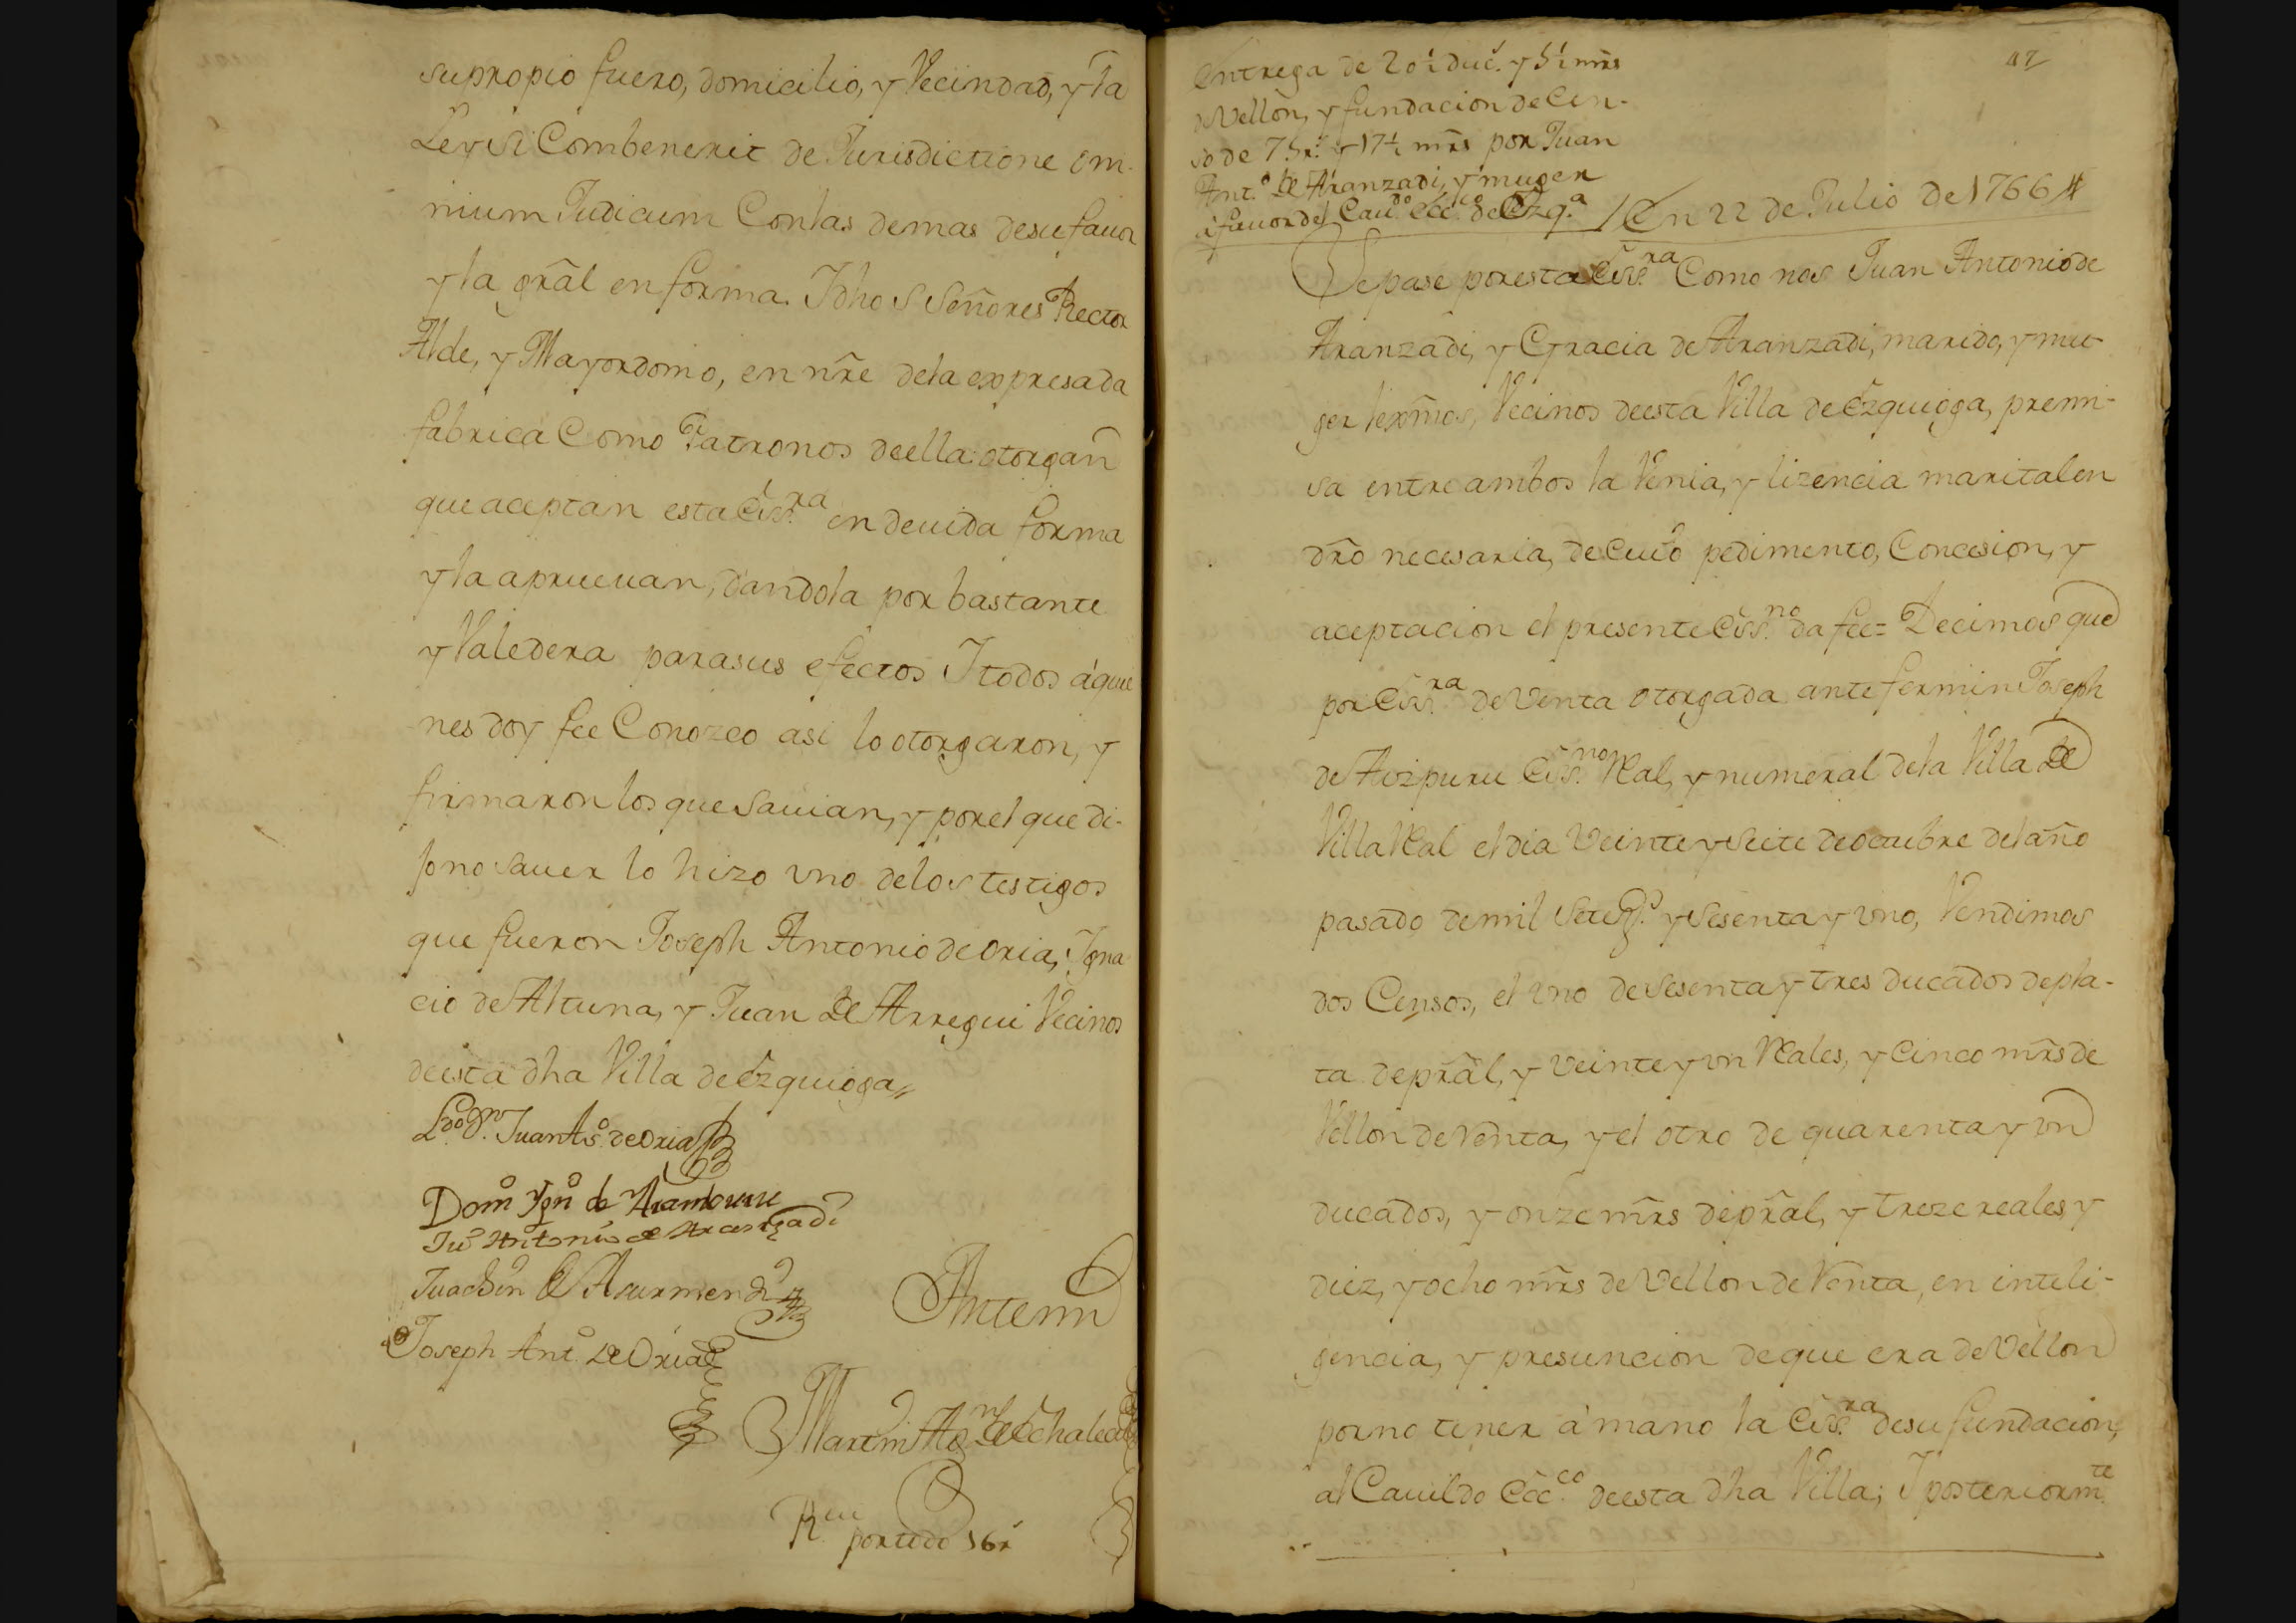 su propio fuero, domicilio, y Vecindad, y la
Ley Si Combenerit de Jurisdictione om-
nium Judicum Con las demas de su fauor
y la grãl en forma. I dhos Señores Rector
Alde, y Mayordomo, en nr̃e de la expresada
fabrica Como Patronos de ella: otorgan
que aceptan esta Ess.ra en deuida forma
y la aprueuan, dandola por bastante
y Valedera para sus efectos I todos á quie
nes doy fee Conozco asi lo otorgaron, y
firmaron los que Sauian, y por el que di-
jo no sauer lo hizo vno de los testigos
que fueron Joseph Antonio de Oria, Igna
cio de Altuna, y Juan de Arregui Vecinos
de esta dha Villa de Ezquioga
Ldo Dn. Juan Ao. de Oria
Domo Ygno de
Juo Antonio de Aranzadi
de Asurmendi
Joseph Anto. de Oria
Ante mi
Martin
por todo 16 r
47
Entrega de 20½ duc.s y 5½ mrs
de Vellon, y fundacion de Cen-
so de 7.5 r.s y 17½ mrs por Juan
Ant.o de Aranzadi, y muger
á fauor del Cau.do Ecc.co de Ezq.a / En 22 de Julio de 1766
Sepase por esta Ess.ra Como nos Juan Antonio de
Aranzadi, y Gracia de Aranzadi, marido, y mu-
ger lexmos, Vecinos de esta Villa de Ezquioga, premi-
sa entre ambos la Venia, y lizencia marital en
dr̃o necesaria, de cuio pedimento, Concesion, y
aceptacion el presente Ess.no da fee= Decimos que
por Ess.ra de Venta otorgada ante fermin Joseph
de Aizpuru Ess.no Real, y numeral de la Villa de
Villa Real el dia Veinte y Seite de octubre del año
pasado de mil Setez.s y Sesenta y vno, Vendimos
dos Censos, el vno de Sesenta y tres ducados de pla-
ta de pr̃al, y veinte y vn Reales, y Cinco mr̃s de
Vellon de Renta, y el otro de quarenta y vn
ducados, y onze mr̃s de pr̃al, y treze reales, y
diez, y ocho mr̃s de Vellon de Renta, en inteli-
gencia, y presuncion de que era de Vellon
por no tener á mano la Ess.ra de su fundacion,
al Cauildo Ecc.co de esta dha Villa; I posteriorm.te